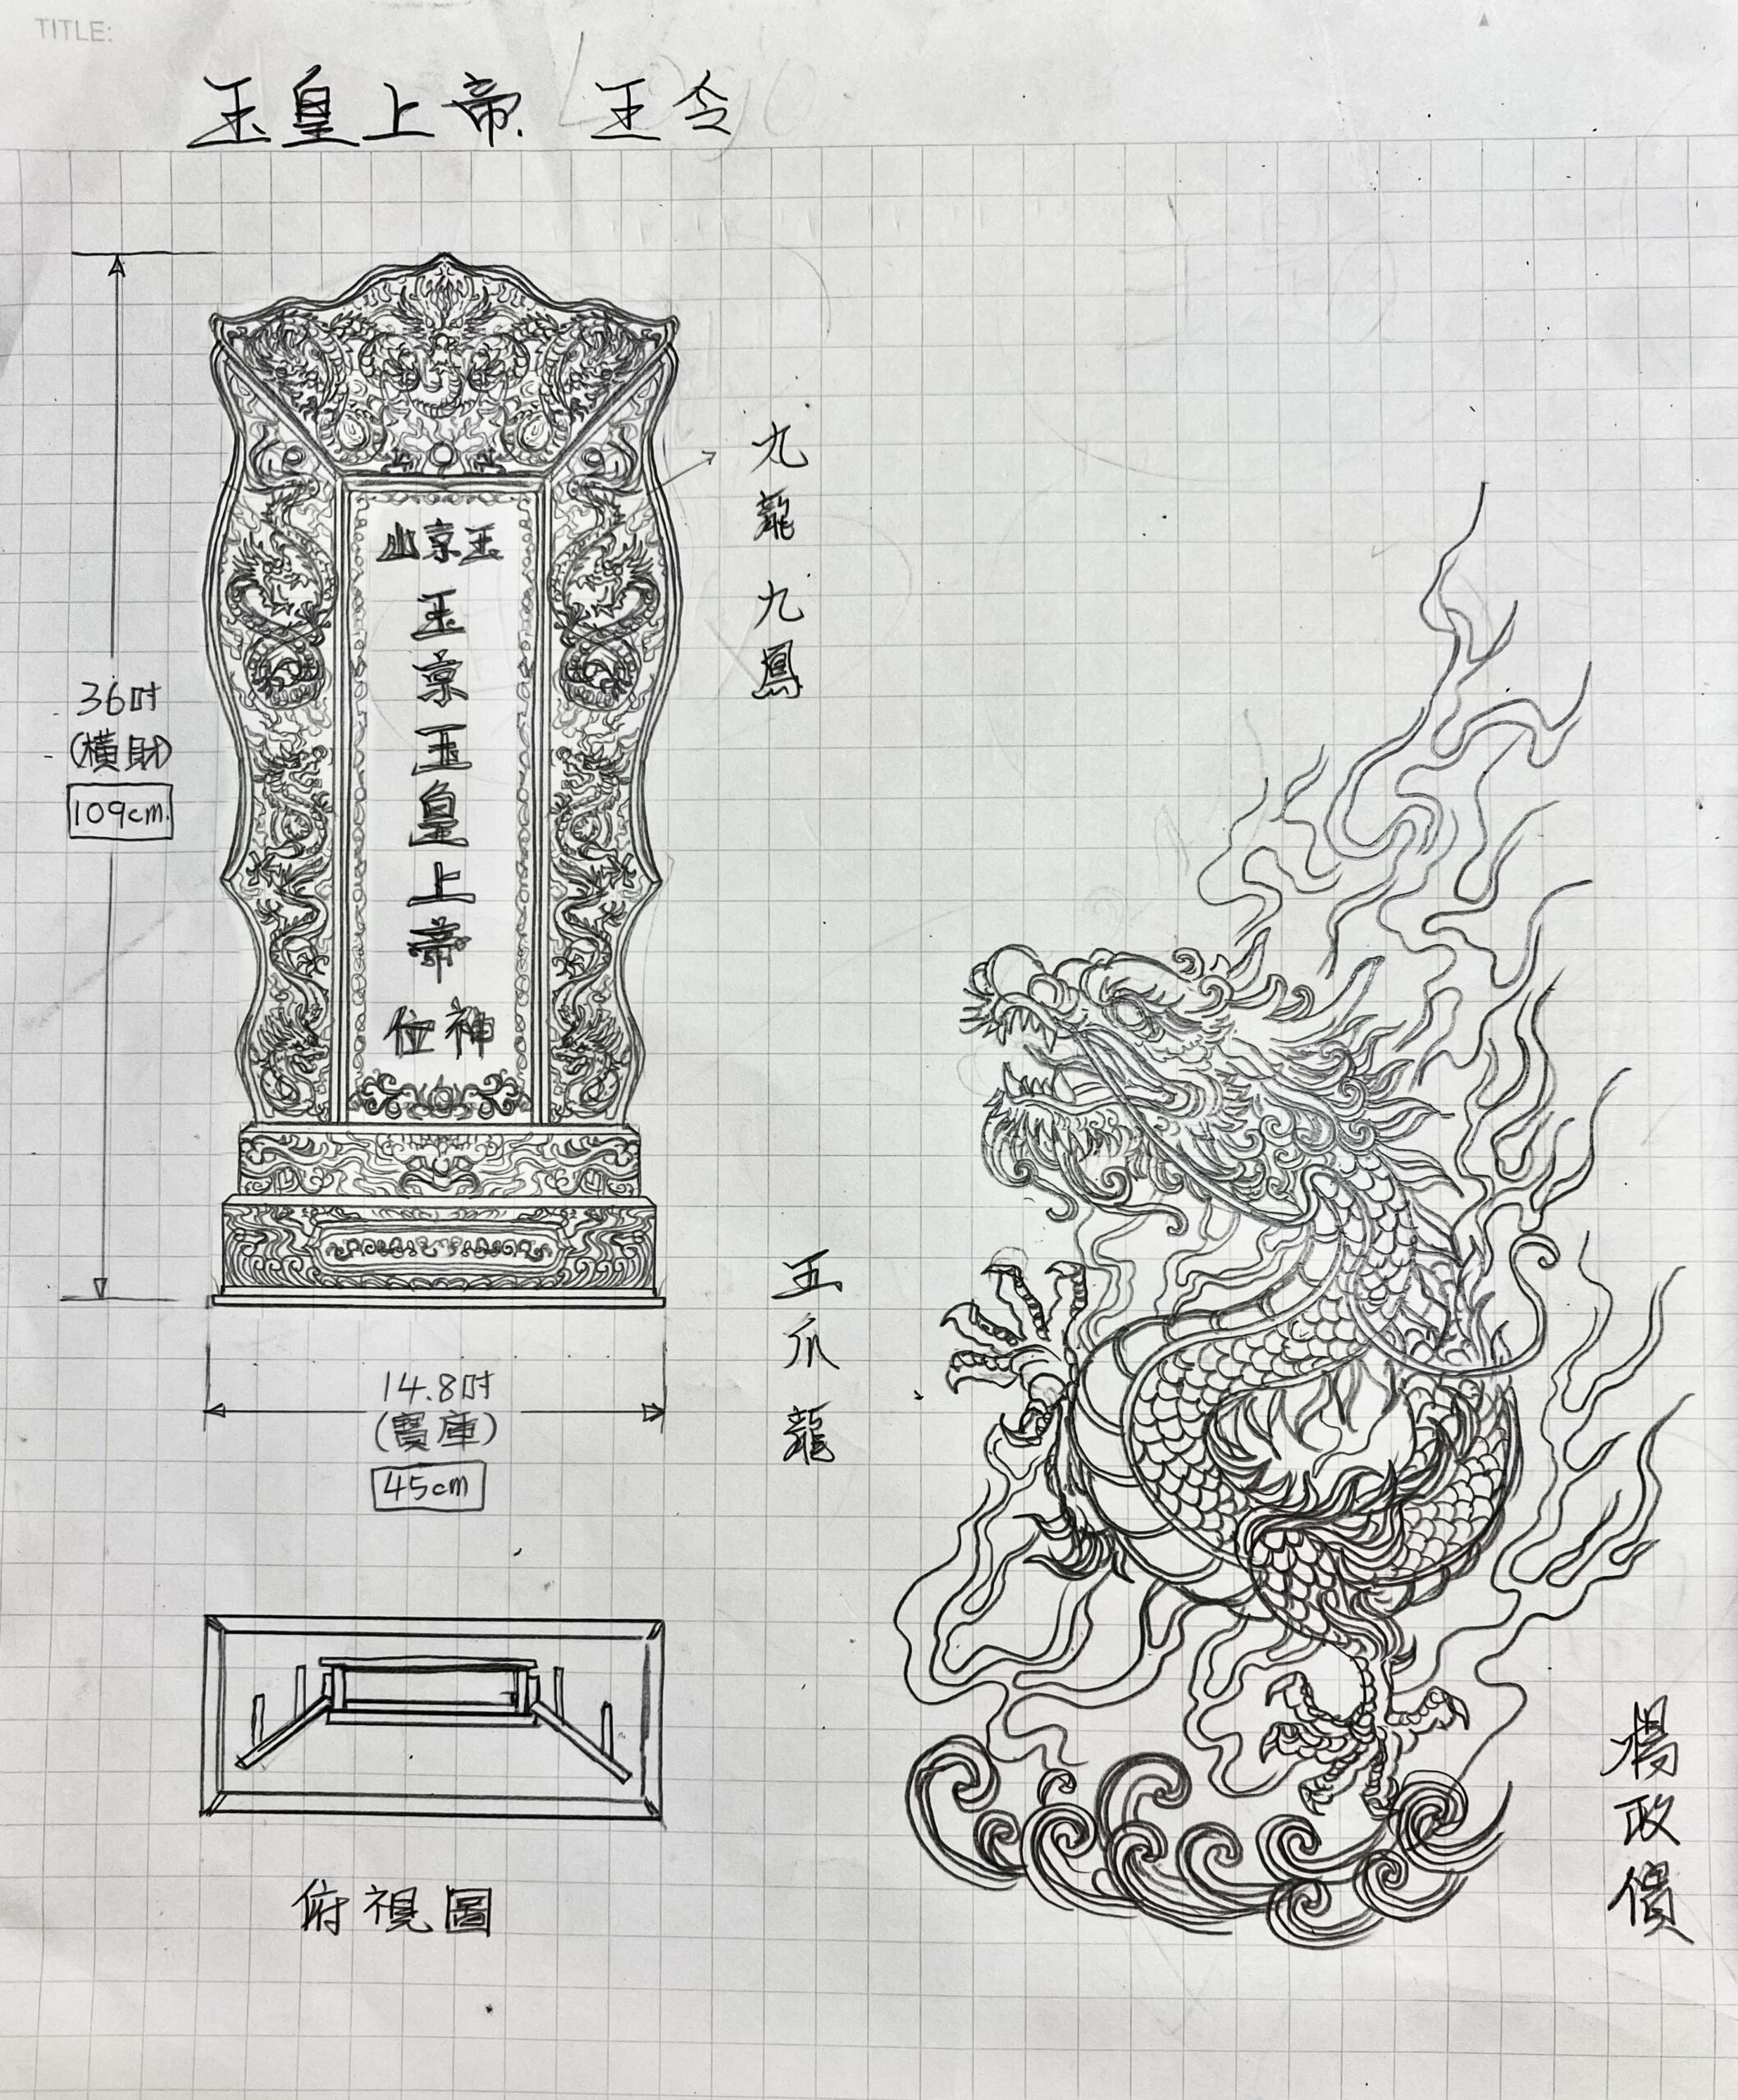 TITLE:
玉皇上帝 王令
九龍九鳳
玉京山
玉京玉皇上帝
神位
36吋
(橫財)
109cm.
14.8吋
(寶庫)
45cm
五爪龍
俯視圖
楊政